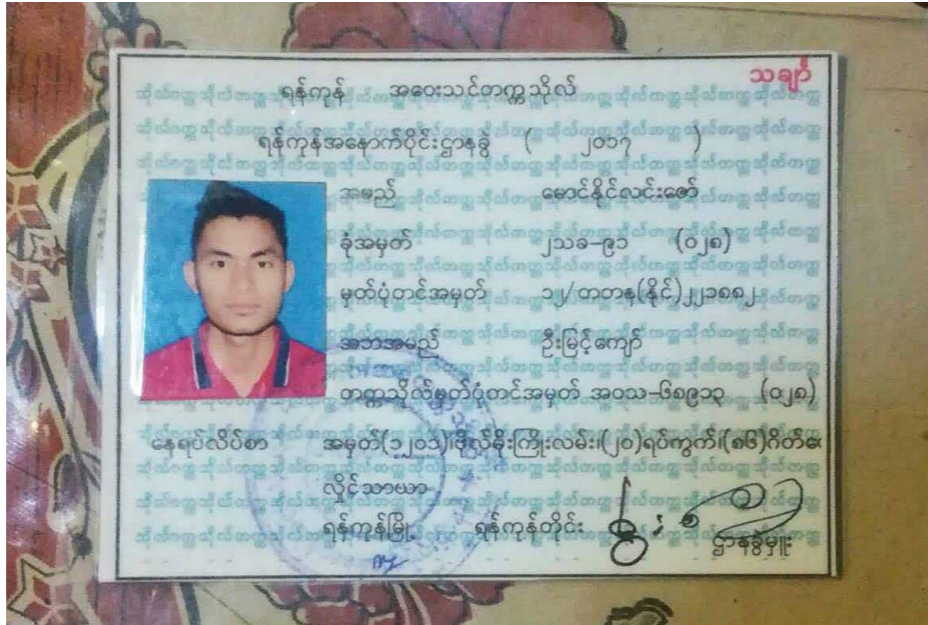 သင်္ချာ
ရန်ကုန် အဝေးသင်တက္ကသိုလ်
ရန်ကုန်အနောက်ပိုင်းဌာနခွဲ ( ၂၀၁၇ )
အမည် မောင်နိုင်လင်းဇော်
ခုံအမှတ် ၂သခ-၉၁ (၀၂၈)
မှတ်ပုံတင်အမှတ် ၁၂/တတန(နိုင်)၂၂၁၈၈၂
အဘအမည် ဦးမြင့်ကျော်
တက္ကသိုလ်မှတ်ပုံတင်အမှတ် အဝသ-၆၈၉၁၃ (၀၂၈)
နေရပ်လိပ်စာ အမှတ်(၁၂၀၁)၊ဗိုလ်မိုးကြိုးလမ်း၊(၂၀)ရပ်ကွက်၊(၈၆)ဂိတ်
လှိုင်သာယာ
ရန်ကုန်မြို့ ရန်ကုန်တိုင်း
ဌာနခွဲမှူး